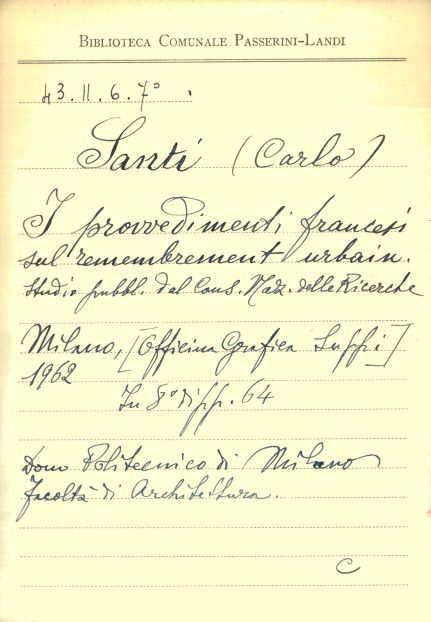 BIBLIOTECA COMUNALE PASSERINI-LANDI
43.II.6.7°
Santi (Carlo)
I provvedimenti francesi
sul remembrement urbain.
Studio pubbl. dal Cons. Naz. delle Ricerche
Milano, [Officina Grafica
1962
In 8° di pp. 64
Dono Politecnico di Milano
Facoltà di Architettura.
C